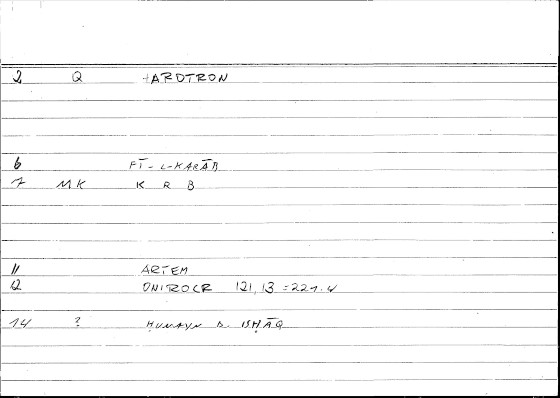 2 Q AROTRON
6 FĪ-L-KARĀB
7 MK K R B
11 ARTEM
12 ONIROCR 121,13 = 221.4
14 ? ḤUNAYN B. ISḤĀQ